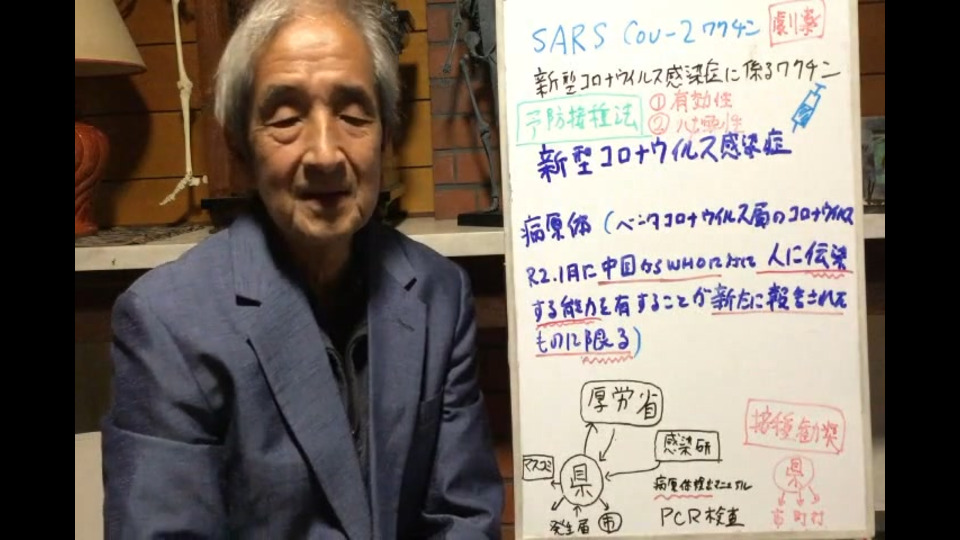 SARS Cov-2 ワクチン
劇薬
新型コロナウイルス感染症に係るワクチン
予防接種法
① 有効性
②
新型コロナウイルス感染症
病原体 (ベータコロナウイルス属のコロナウイルス
R2.1月に中国からWHOに対して 人に伝染
する能力を有することが新たに報告された
ものに限る)
厚労省
接種勧奨
感染研
マスコミ
県
県
病原体検出マニュアル
発生届
市
PCR検査
市町村